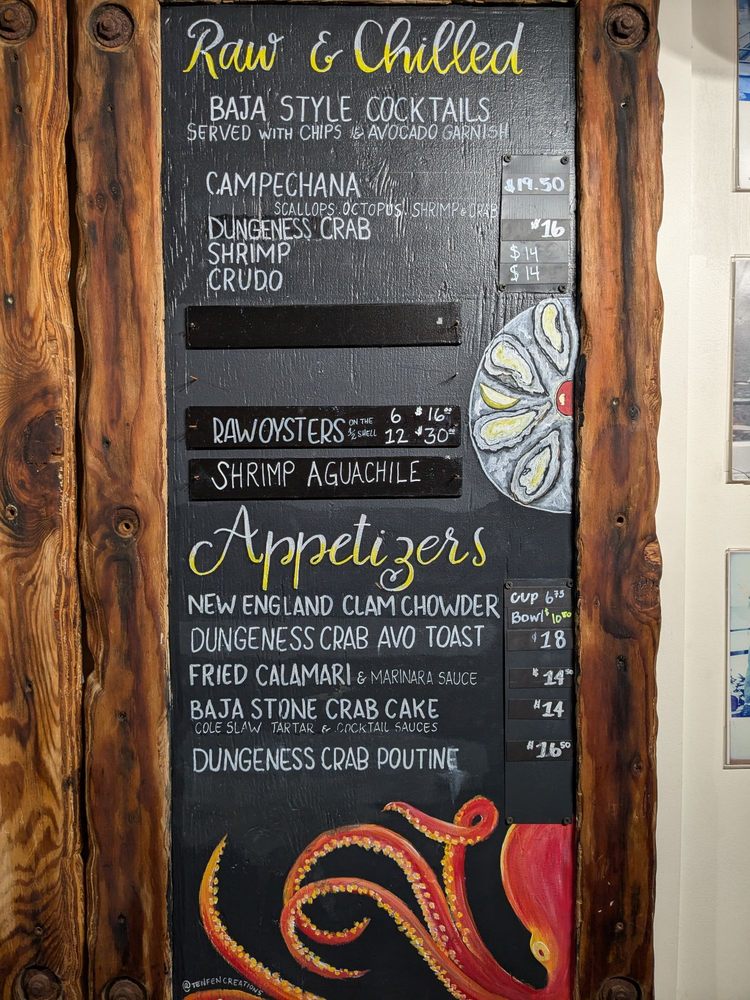 Raw & Chilled
BAJA STYLE COCKTAILS
SERVED WITH CHIPS & AVOCADO GARNISH
CAMPECHANA $19.50
SCALLOPS, OCTOPUS, SHRIMP & CRAB
DUNGENESS CRAB $16
SHRIMP $14
CRUDO $14
RAW OYSTERS ON THE 1/2 SHELL 6 $16.00
12 $30.00
SHRIMP AGUACHILE
Appetizers
NEW ENGLAND CLAM CHOWDER CUP 6.75
Bowl $10.50
DUNGENESS CRAB AVO TOAST $18
FRIED CALAMARI & MARINARA SAUCE $14.50
BAJA STONE CRAB CAKE $14
COLE SLAW TARTAR & COCKTAIL SAUCES
DUNGENESS CRAB POUTINE $16.50
@JENFENCREATIONS